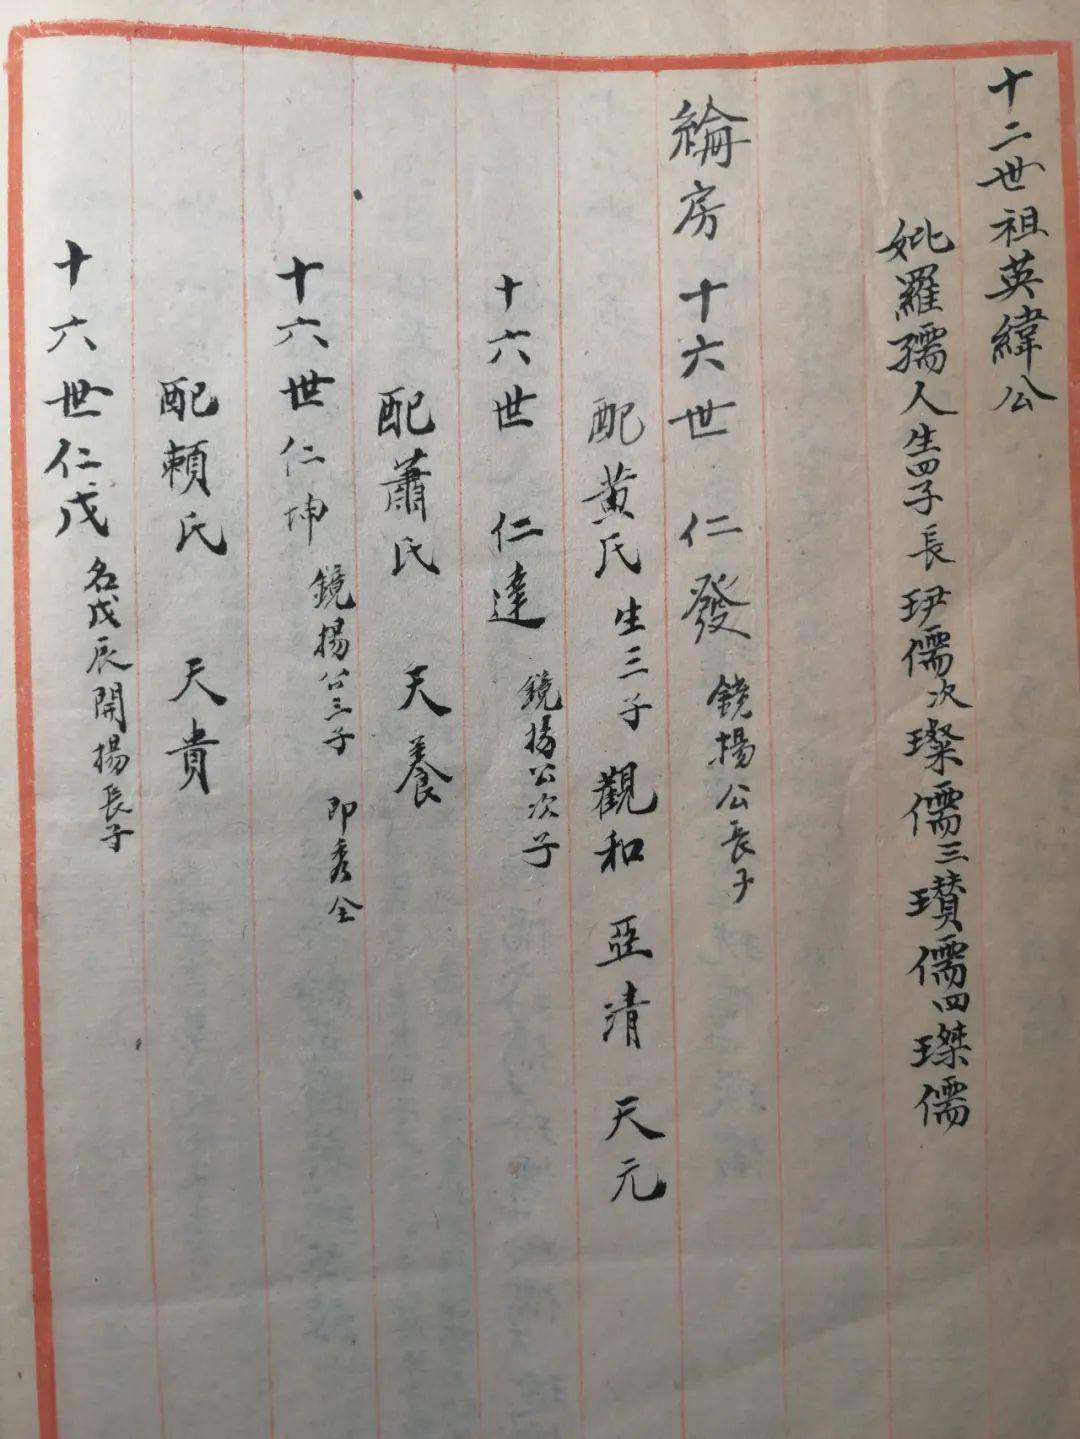 十二世祖英緯公
妣羅孺人生四子長玾儒次璨儒三瓚儒四璨儒
綸房 十六世 仁發 鏡揚公長子
配黄氏生三子 觀和 亞清 天元
十六世 仁達 鏡揚公次子
配蕭氏 天養
十六世仁坤 鏡揚公三子 即秀全
配賴氏 天貴
十六世仁戊 名戊辰開揚長子